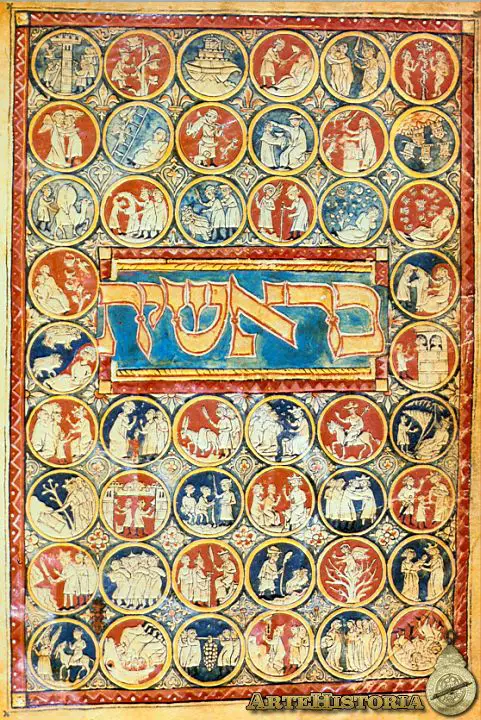 בראשית
ARTEHISTORIA